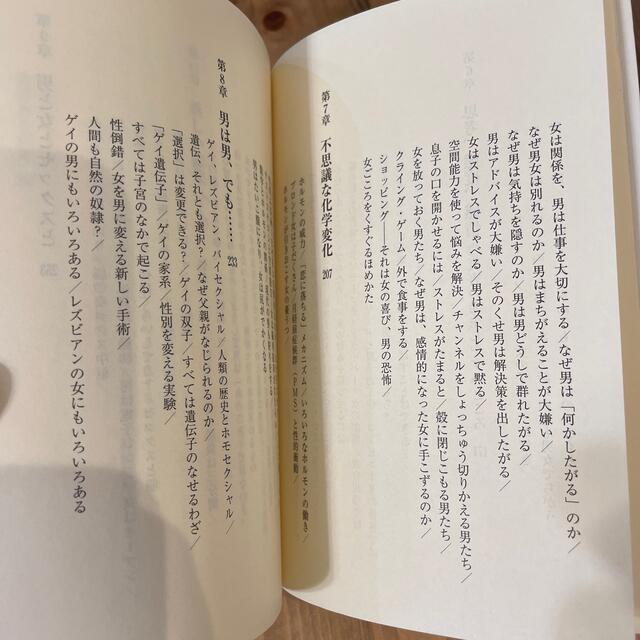 女は関係を、男は仕事を大切にする／なぜ男は「何かしたがる」のか／
なぜ男女は別れるのか／男はまちがえることが大嫌い／
なぜ男は気持ちを隠すのか／男は男どうしで群れたがる／
男はアドバイスが大嫌い／そのくせ男は解決策を出したがる／
女はストレスでしゃべる／男はストレスで黙る／
空間能力を使って悩みを解決／チャンネルをしょっちゅう切りかえる男たち／
息子の口を開かせるには／ストレスがたまると／殻に閉じこもる男たち／
女を放っておく男たち／なぜ男は、感情的になった女に手こずるのか／
クライング・ゲーム／外で食事をする／
ショッピング──それは女の喜び、男の恐怖／
女ごころをくすぐるほめかた
第7章 不思議な化学変化 207
ホルモンの威力／「恋に落ちる」メカニズム／いろいろなホルモンの働き／
第8章 男は男、でも…… 233
ゲイ、レズビアン、バイセクシャル／人類の歴史とホモセクシャル／
遺伝、それとも選択？／なぜ父親がなじられるのか／
「選択」は変更できる？／ゲイの双子／すべては遺伝子のなせるわざ／
「ゲイ遺伝子」／ゲイの家系／性別を変える実験／
すべては子宮のなかで起こる／
性倒錯／女を男に変える新しい手術／
人間も自然の奴隷？／
ゲイの男にもいろいろある／レズビアンの女にもいろいろある